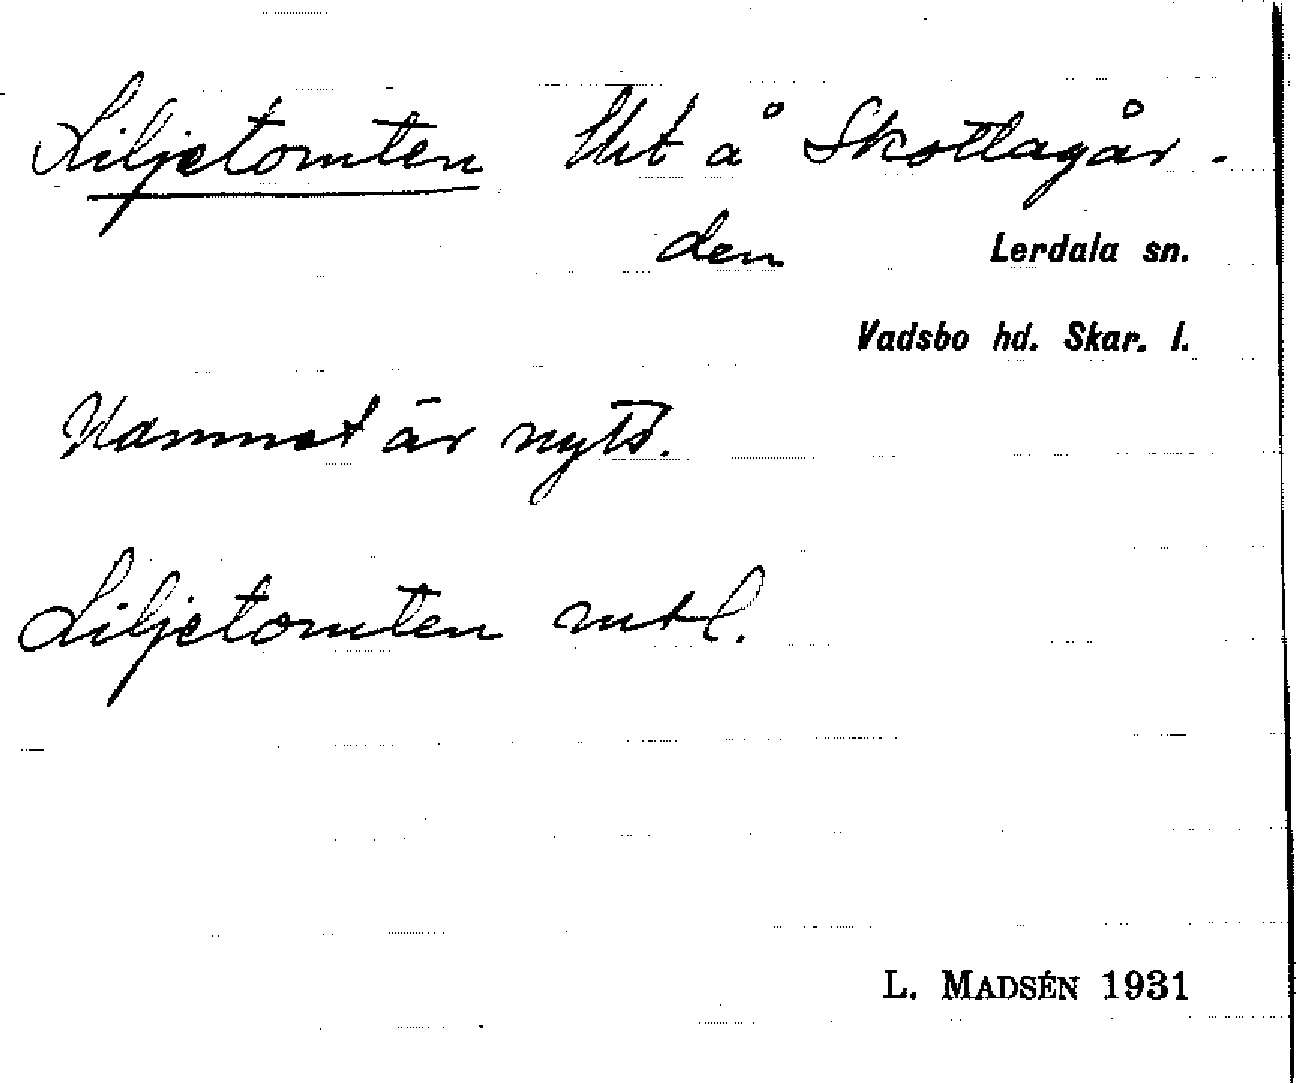 Liljetomten lht å Skottagår-
den Lerdala sn.
Vadsbo hd. Skar. l.
Namnet är nytt.
Liljetomten mtl.
L. MADSÉN 1931